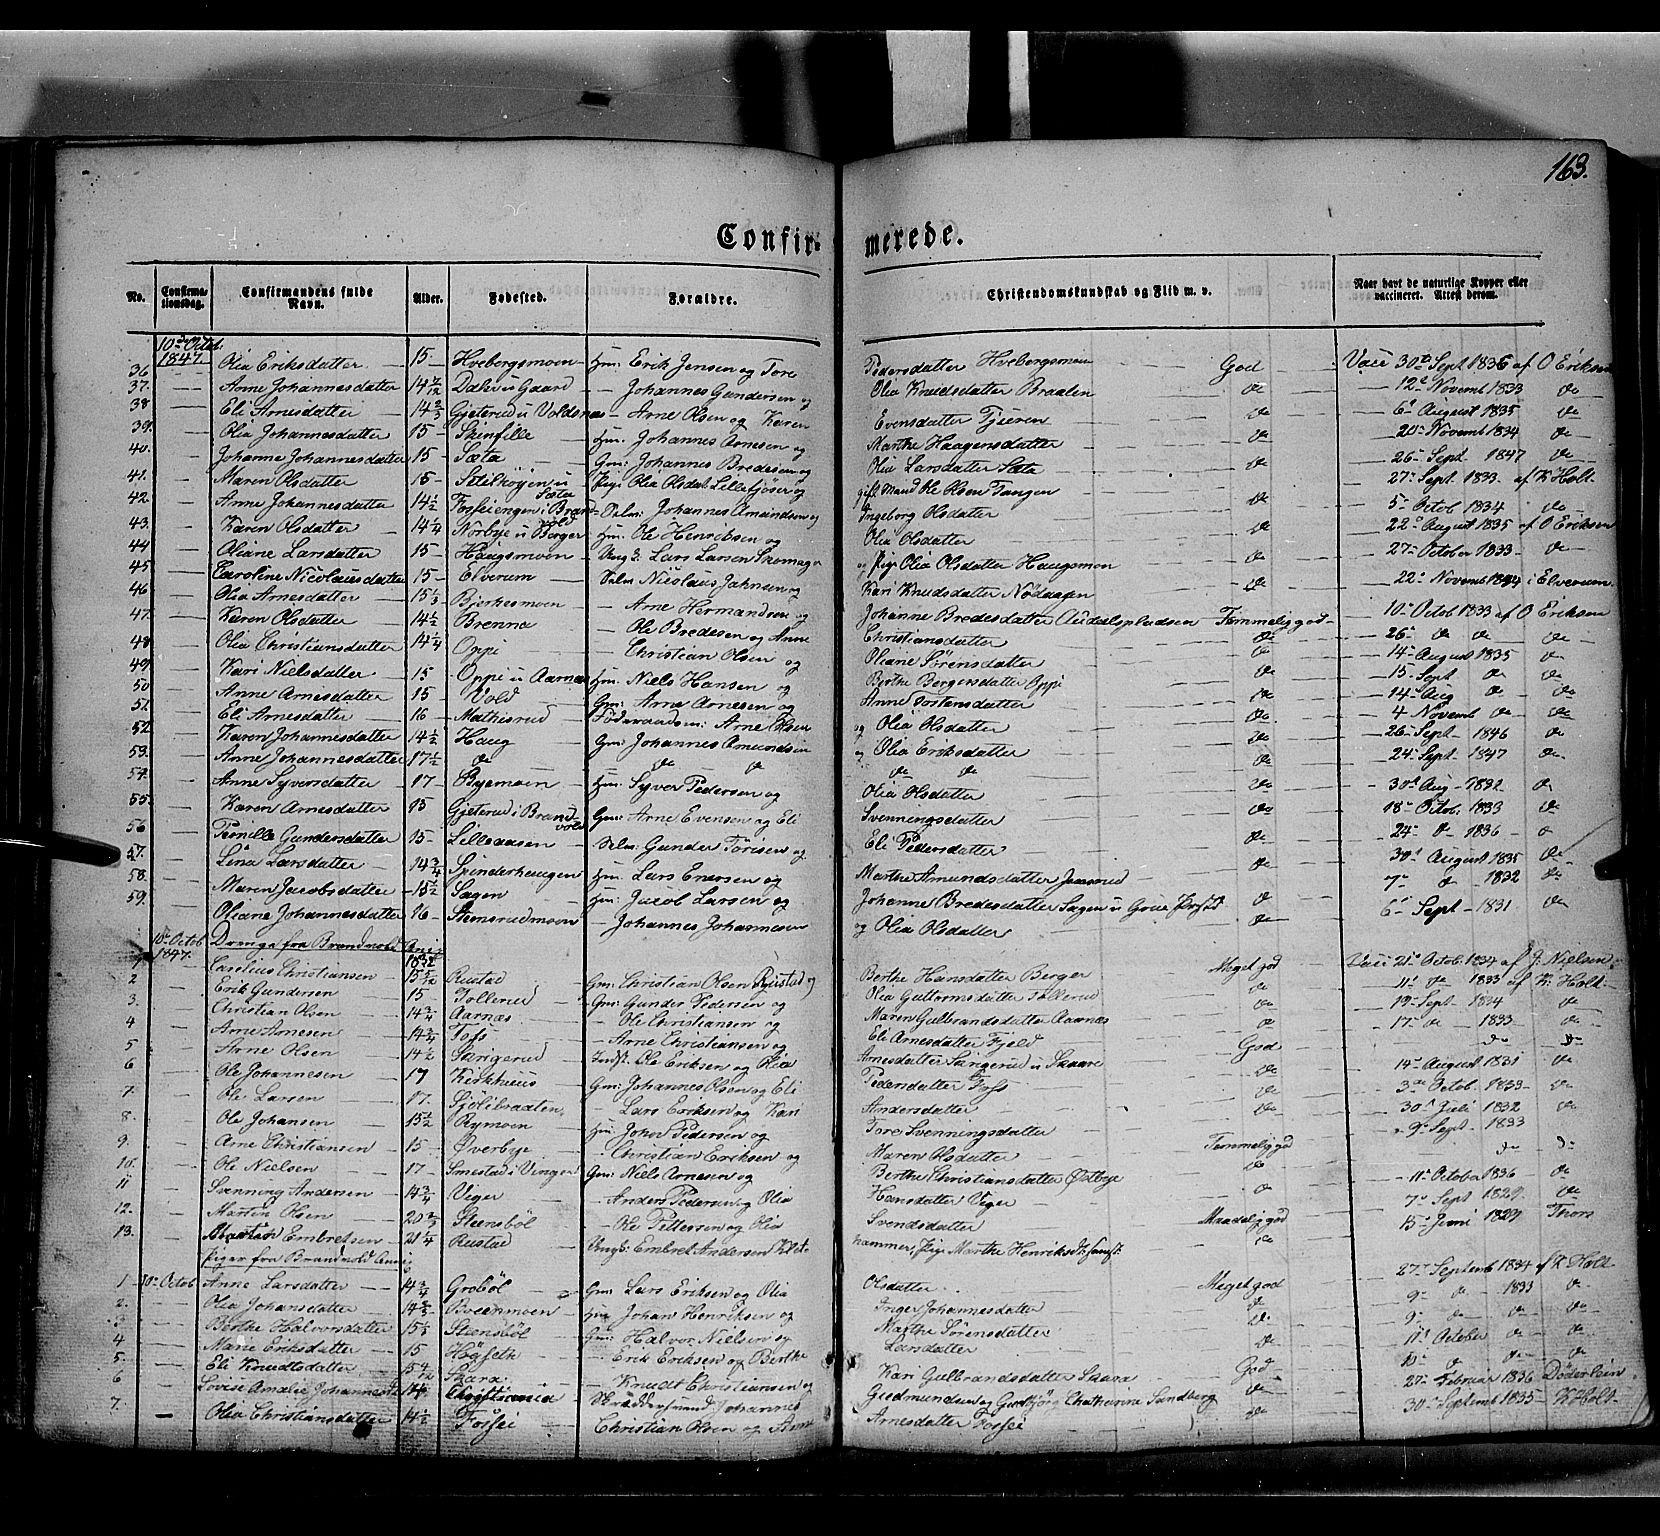 163.
Confirmerede.
No. Confirmationsdag. Confirmandens fulde Navn. Alder. Fødested. Forældre. Christendomskundskab og Flid m. v. Naar havt de naturlige Kopper eller vaccineret. Attest derom.
10de Octob. 1847.
36 Olia Eriksdatter 15 Hvebergsmoen Hm: Erik Jensen og Tore Pedersdatter Hvebergsmoen God Vacc 30te Sept 1836 af O Eriksen
37. Anne Johannesdatter 14 7/12 Dahl u Gaard Johannes Gundersen og Olia Knudsdatter Braaten do 12te Novemb 1833 do
38 Eli Arnesdatter 14 2/3 Gjeterud u Voldnæs Arne Olsen og Karen Evensdatter Tjuren do 6te August 1835 do
39. Olia Johannesdatter 15 Skinfille Hm: Johannes Arnesen og Marthe Haagensdatter do 20de Novemb 1834 do
40. Johanne Johannesdatter 15 Sæta Gm: Johannes Bredesen og Olia Larsdatter Sæta do 26 Sept 1847 do
41. Maren Olsdatter 15 u Sæta Pige Olia Olsdat. og gift Mand Ole Olsen Tangen 27 Sept 1833 af K Holt
42. Anne Johannesdatter 14 1/2 Fosseiengen i Brandvold Selm: Johannes Amundsen og Ingeborg Olsdatter do 5 Octob 1834 do
43. Karen Olsdatter 14 1/4 Norbye u Berger Hm: Ole Henriksen og Olia Olsdatter do 22de August 1835 af O Eriksen
44 Oliane Larsdatter 15 Haugsmoen Ung K: Lars Larsen Skomager og Pige Olia Olsdatter Haugsmoen do 27 October 1833 do
45 Caroline Nicolausdatter 15 Elverum Selm Nicolaus Jahnsen og Kari Knudsdatter do 22 Novemb 1834 i Elverum
46 Olia Arnesdatter 15 1/3 Bjerkesmoen Arne Hermandsen og Johanne Bredesdatter Temmelig god 10de Octob 1833 af O Eriksen
47. Karen Olsdatter 14 1/2 Brenna Ole Bredesen og Anne Christiansdatter do 26 do do do
48 Olia Christiansdatter 14 1/4 Oppi Christian Olsen og Oliane Sørensdatter do 14 August 1835 do
49. Kari Nielsdatter 15 Oppi u Aarnæs Hm: Niels Hansen og Berthe Bergersdatter Oppi do 15 Sept do do
50 Anne Arnesdatter 15 Vold Gm: Arne Arnesen og Anne Tostensdatter do 14 Aug do do
51. Eli Arnesdatter 16 Mathisrud Føderaadsm: Arne Olsen og Olia Olsdatter do 4 Novemb do do
52 Karen Johannesdatter 14 1/2 Haug Gm: Johannes Amundsen og Olia Eriksdatter do 26 Sept 1846 do
53. Anne Johannesdatter 17 1/2 do do do do do do 24 Sept 1847 do
54. Anne Syversdatter 17 Byemoen Hm: Syver Pedersen og Olia Olsdatter do 30te Aug 1832 do
55. Karen Arnesdatter 15 Gjeterud i Brandvold Gm: Arne Evensen og Eli Svenningsdatter do 18 Octob. 1833 do
56 Pernille Gundersdatter 15 Lilleaasen Selm: Gunder Tørisen og Eli Pedersdatter do 24 do 1836 do
57. Lina Larsdatter 14 3/4 Spinderhaugen Hm: Lars Enersen og Marthe Amundsdatter do 30te August 1835 do
58. Maren Jacobsdatter 15 1/2 Sagen Hm: Jacob Larsen og Johanne Bredesdatter Sagen u Grue Præstg do 7de do 1832 do
59. Oliane Johannesdatter 16 Stemsrudmoen Johannes Johannesen og Olia Olsdatter do 6te Sept 1831 do
10de Octob 1847. Drenge fra Brandvold Annex
1 Carelius Christiansen 15 5/12 Rustad Gm: Christian Olsen Rustad og Berthe Hansdatter Berger Meget god Vacc 21de Octob. 1834 af J. Nielsen
2 Erik Gundersen 15 Tollerud Gm: Gunder Pedersen og Olia Guttormsdatter Tollerud do 11te do 1833 af K: Holt
3. Christian Olsen 14 3/4 Aarnæs Ole Christiansen og Maren Gulbrandsdatter Aarnæs do 19 Sept 1834 do
4 Arne Arnesen 14 3/4 Tofs Arne Christiansen og Eli Arnesdatter Fjeld do 17 do 1833 do
5 Arne Olsen 14 1/2 Skrigerud Indst: Ole Eriksen og Olia Arnesdatter u Skaare God do do
6 Ole Johannesen 17 Kirkhuus Gm: Johannes Olsen og Eli Pedersdatter do 14 August 1831 do
7. Ole Larsen 17. Sjølibraaten Lars Eriksen og Kari Andersdatter do 3de Octob. 1833 do
8. Ole Johansen 15 1/2 Rymoen Hm: Johan Pedersen og Tore Svenningsdatter do 30te Juli 1832 do
9. Arne Christiansen 15 Øverbye Christian Eriksen og Maren Olsdatter Temmelig god 9de Sept 1833
10. Ole Nielsen 17 Smestad i Vinger Gm: Niels Arnesen og Berthe Christiansdatter Østbye do do
11 Svenning Andersen 14 3/4 Viger Anders Pedersen og Olia Hansdatter Viger do 11te October 1836 do
12. Martin Olsen 20 2/3 Steensböl Ole Pettersen og Olia Svendsdatter Maadelig god 7de Sept 1829 do
13. Embretsen 21 1/4 Rustad Ungk: Embret Andersen Pige Marthe Henriksdt: do 15 Juni 1829 Thom
Piger fra Brandvold Annex
1 10de Octob Anne Larsdatter 14 3/4 Groböl Gm: Lars Eriksen og Olia Olsdatter Meget god 27 Septemb 1834 af K Holt
2. Olia Johansdatter 14 2/3 Hm Johan Henriksen og Inger Johannesdatter do 9 do 1833 do
3 Berthe Halvorsdatter 15 1/3 Steensböl Gm: Halvor Nielsen og Marthe Sørensdatter do 9 do do do
4 Marie Eriksdatter 15 Högseth Erik Eriksen og Berthe Larsdatter do 11te October do do
5. Eli Knudtsdatter 15 Skara Knudt Christiansen og Kari Gulbrandsdatter Skara God 10 do do do
6 Lovise Amalie Johannesd 14 Christiania Skræddersvend Johannes Gudmundsen og Gudbjörg Chatharina Sundberg do 27 Februar 1836 Döderlein
7. Olia Christiansdatter 14 1/2 Fossei Christian Olsen og Anne Arnesdatter Fossei do 30te Septemb 1835 K Holt